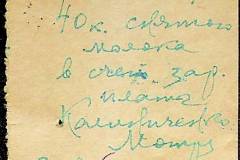 40 к. снятого
молока
в счет зар.
плата
Калиниченко